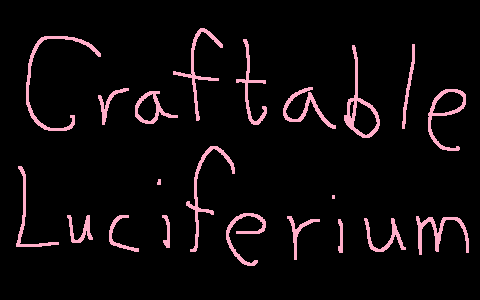 Craftable
Luciferium